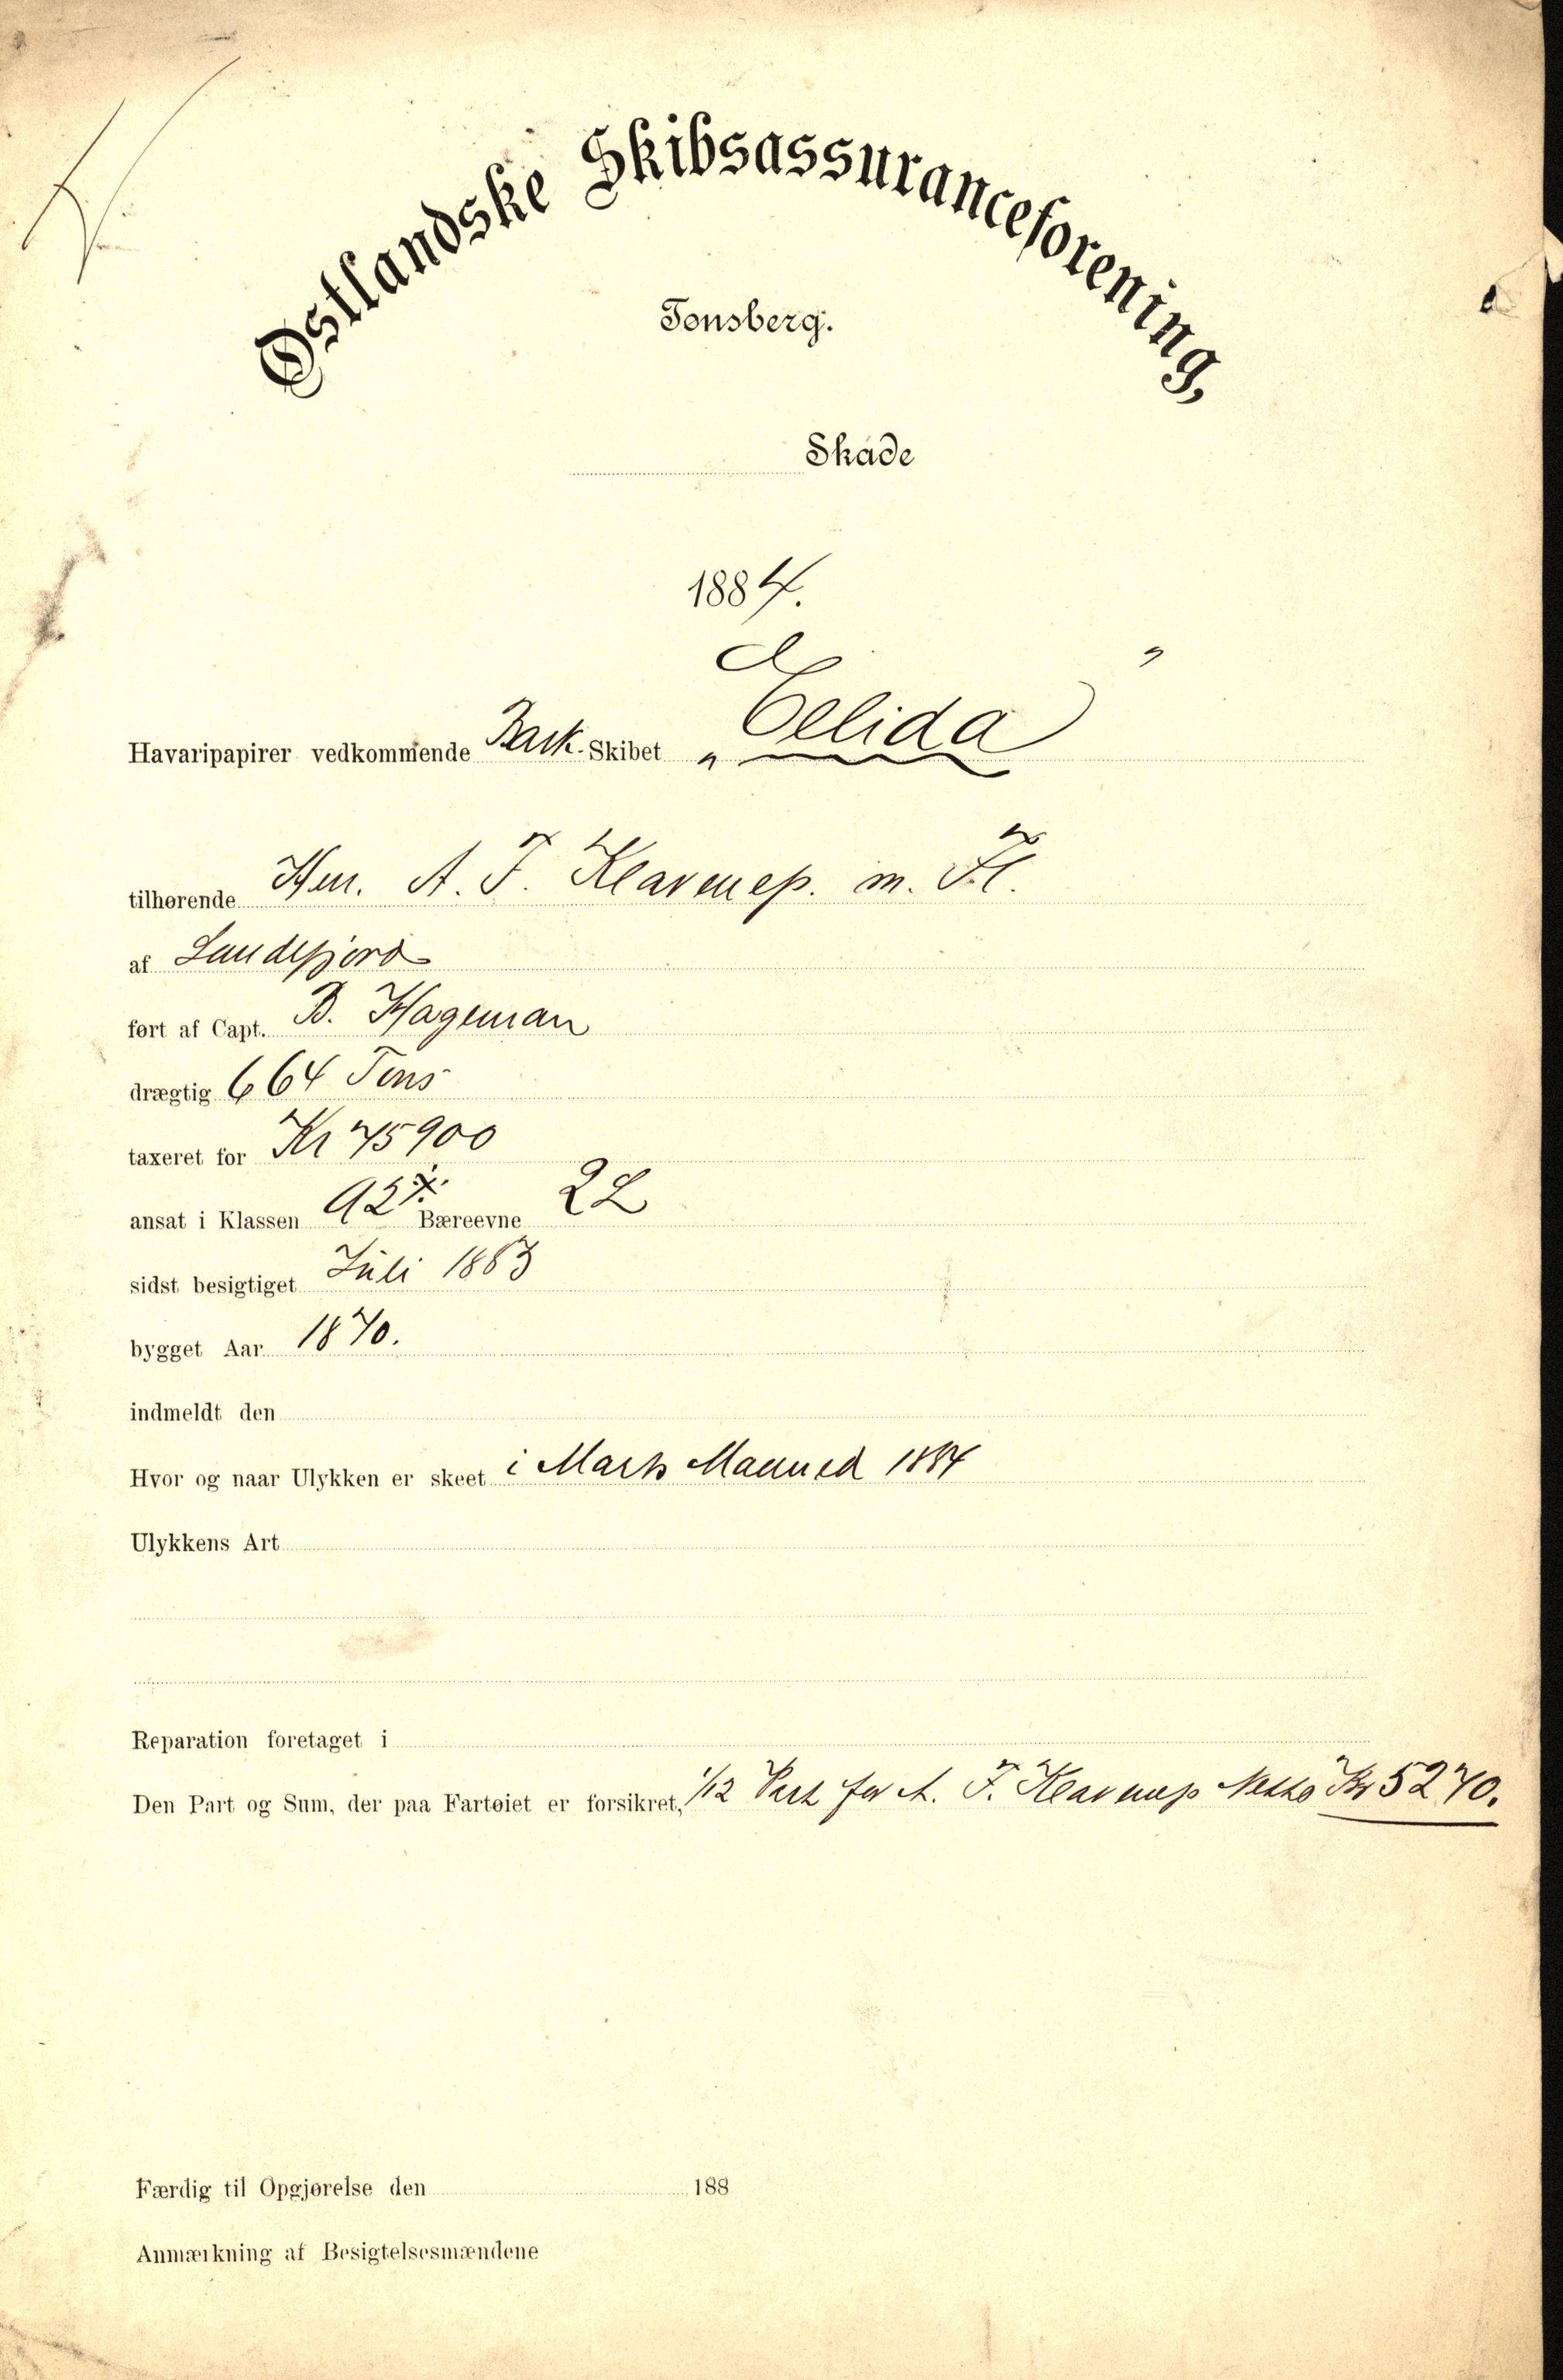 Østlandske Skibsassuranceforening,
Tønsberg.
Skade
1884.
Havaripapirer vedkommende Bark-Skibet „Ellida”
tilhørende Herr. A. F. Klavenes. m. Fl.
af Sandefjord
ført af Capt. B. Hageman
drægtig 664 Tons
taxeret for Kr 75900
ansat i Klassen A2 Bæreevne 2L
sidst besigtiget Juli 1883
bygget Aar 1870.
indmeldt den
Hvor og naar Ulykken er skeet i Marts Maaned 1884
Ulykkens Art
Reparation foretaget i
Den Part og Sum, der paa Fartøiet er forsikret, 1/12 Part for A. F. Klavenes Netto Kr 5270.
Færdig til Opgjørelse den 188
Anmærkning af Besigtelsesmændene